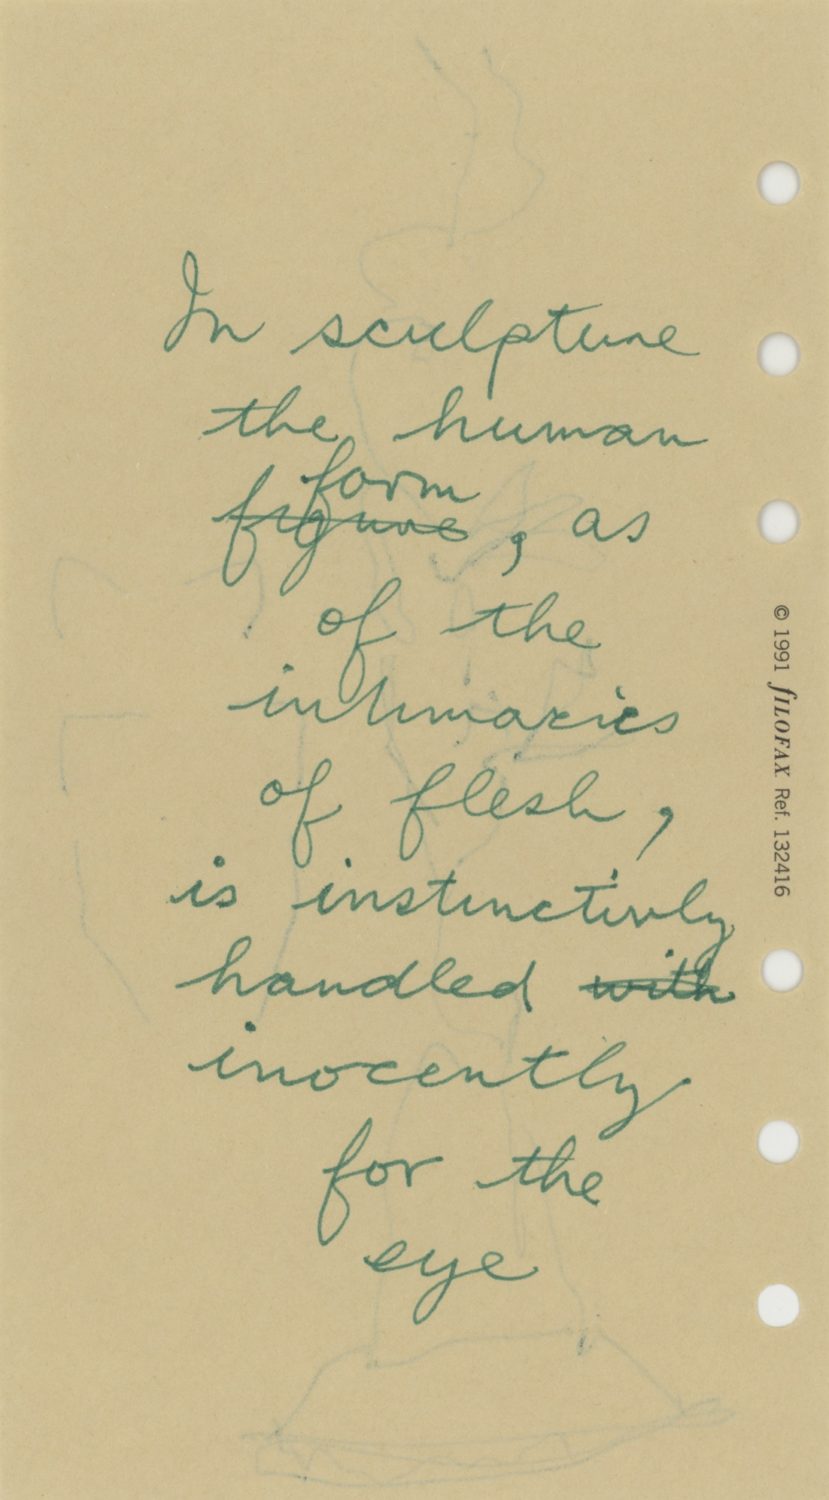 In sculpture
the human
form
figure, as
of the
intimacies
of flesh,
is instinctivly
handled with
inocently
for the
eye
© 1991 FILOFAX Ref. 132416